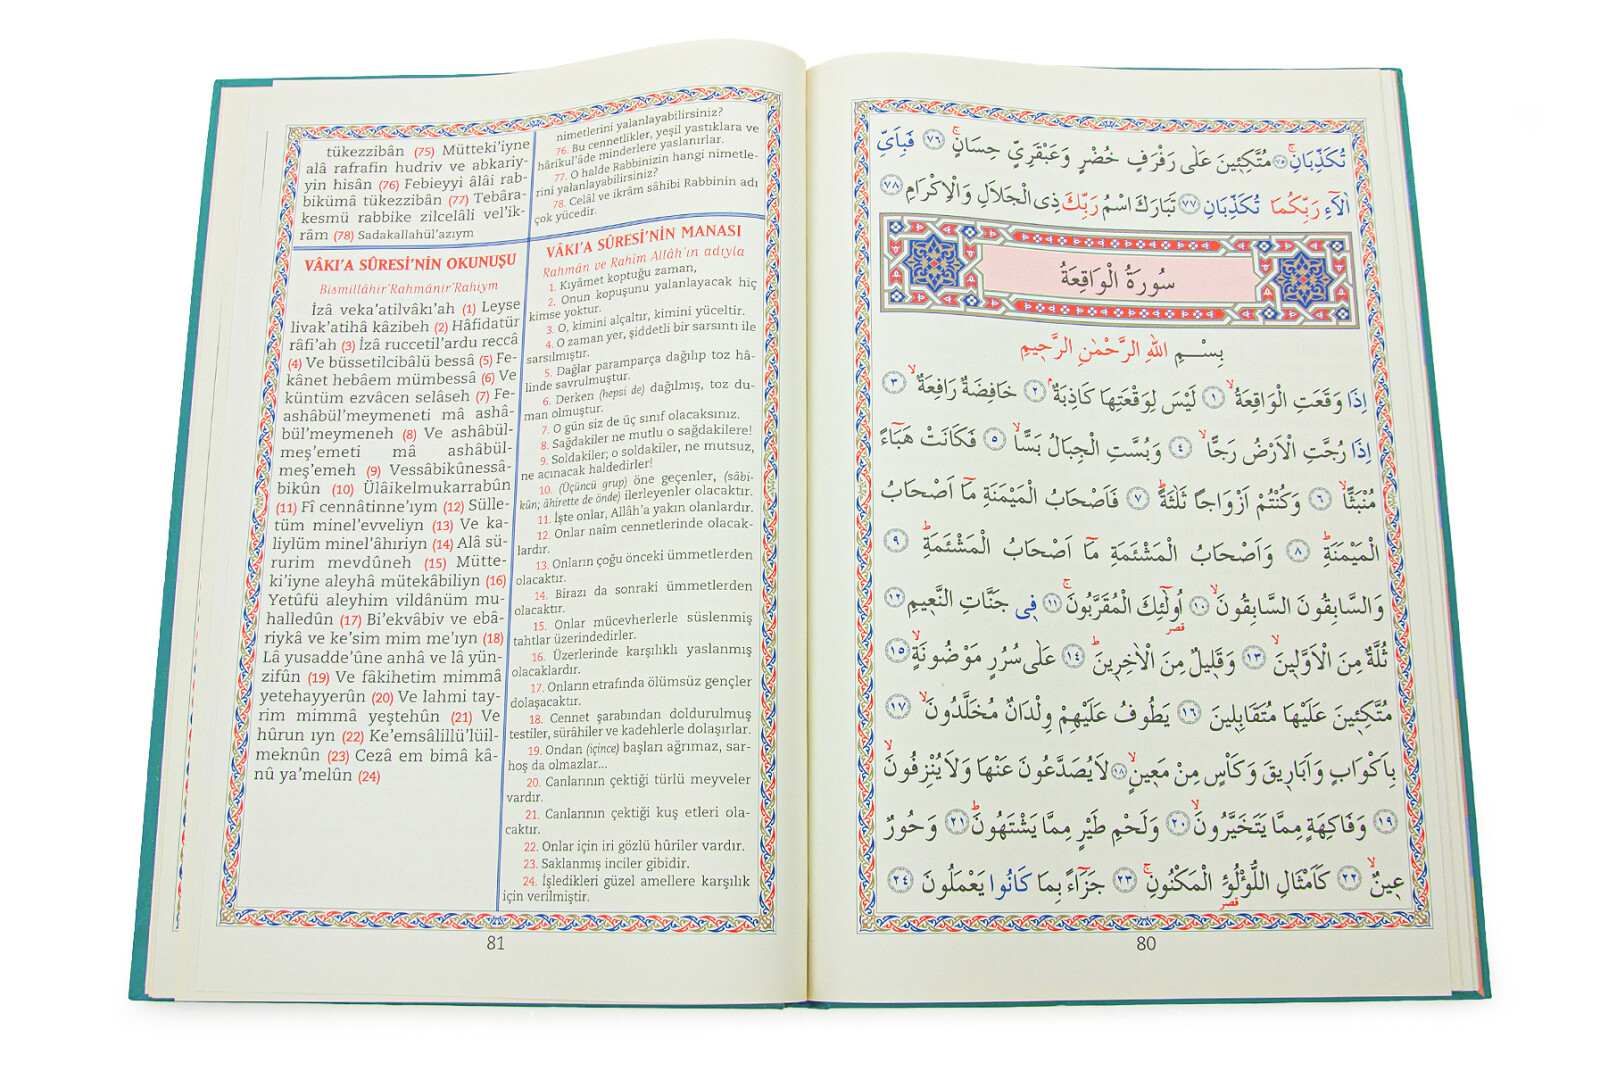 تُكَذِّبَانِۚ ﴿٧٥﴾ مُتَّكِـ۪ٔينَ عَلٰى رَفْرَفٍ خُضْرٍ وَعَبْقَرِيٍّ حِسَانٍۚ ﴿٧٦﴾ فَبِاَيِّ
اٰلَٓاءِ رَبِّكُمَا تُكَذِّبَانِ ﴿٧٧﴾ تَبَارَكَ اسْمُ رَبِّكَ ذِي الْجَلَالِ وَالْاِكْرَامِ ﴿٧٨﴾
سُورَةُ الْوَاقِعَةُ
بِسْــمِ اللهِ الرَّحْمٰنِ الرَّح۪يمِ
اِذَا وَقَعَتِ الْوَاقِعَةُۙ ﴿١﴾ لَيْسَ لِوَقْعَتِهَا كَاذِبَةٌۢ ﴿٢﴾ خَافِضَةٌ رَافِعَةٌۙ ﴿٣﴾
اِذَا رُجَّتِ الْاَرْضُ رَجًّاۙ ﴿٤﴾ وَبُسَّتِ الْجِبَالُ بَسًّاۙ ﴿٥﴾ فَكَانَتْ هَبَٓاءً
مُنْبَثًّاۙ ﴿٦﴾ وَكُنْتُمْ اَزْوَاجًا ثَلٰثَةًۜ ﴿٧﴾ فَاَصْحَابُ الْمَيْمَنَةِ مَٓا اَصْحَابُ
الْمَيْمَنَةِۜ ﴿٨﴾ وَاَصْحَابُ الْمَشْـَٔمَةِ مَٓا اَصْحَابُ الْمَشْـَٔمَةِۜ ﴿٩﴾
وَالسَّابِقُونَ السَّابِقُونَۙ ﴿١٠﴾ اُو۬لٰٓئِكَ الْمُقَرَّبُونَۚ ﴿١١﴾ ف۪ي جَنَّاتِ النَّع۪يمِ ﴿١٢﴾
قصر
ثُلَّةٌ مِنَ الْاَوَّل۪ينَۙ ﴿١٣﴾ وَقَل۪يلٌ مِنَ الْاٰخِر۪ينَۜ ﴿١٤﴾ عَلٰى سُرُرٍ مَوْضُونَةٍۙ ﴿١٥﴾
مُتَّكِـ۪ٔينَ عَلَيْهَا مُتَقَابِل۪ينَ ﴿١٦﴾ يَطُوفُ عَلَيْهِمْ وِلْدَانٌ مُخَلَّدُونَۙ ﴿١٧﴾
بِاَكْوَابٍ وَاَبَار۪يقَ وَكَأْسٍ مِنْ مَع۪ينٍۙ ﴿١٨﴾ لَا يُصَدَّعُونَ عَنْهَا وَلَا يُنْزِفُونَۙ
﴿١٩﴾ وَفَاكِهَةٍ مِمَّا يَتَخَيَّرُونَۙ ﴿٢٠﴾ وَلَحْمِ طَيْرٍ مِمَّا يَشْتَهُونَۜ ﴿٢١﴾ وَحُورٌ
ع۪ينٌۙ ﴿٢٢﴾ كَاَمْثَالِ اللُّؤْلُؤِ۬ الْمَكْنُونِۚ ﴿٢٣﴾ جَزَٓاءً بِمَا كَانُوا يَعْمَلُونَ ﴿٢٤﴾
قصر
80
tükezzibân (75) Mütteki’iyne
alâ rafrafin hudriv ve abkariy-
yin hisân (76) Febieyyi âlâi rab-
biküma tükezzibân (77) Tebâra-
kesmü rabbike zilcelâli vel’ik-
râm (78) Sadakallahül’azıym
VÂKI’A SÛRESİ’NİN OKUNUŞU
Bismillâhir’Rahmânir’Rahiym
İzâ veka’atilvâkı’ah (1) Leyse
livak’atihâ kâzibeh (2) Hâfidatür
râfi’ah (3) İzâ ruccetil’ardu reccâ
(4) Ve büssetilcibâlü bessâ (5) Fe-
kânet hebâem mümbessâ (6) Ve
küntüm ezvâcen selâseh (7) Fe-
ashâbül’meymeneti mâ ashâ-
bül’meymeneh (8) Ve ashâbül-
meş’emeti mâ ashâbül-
meş’emeh (9) Vessâbikûnessâ-
bikûn (10) Ülâikelmukarrabûn
(11) Fî cennâtinne’ıym (12) Sülle-
tüm minel’evveliyn (13) Ve ka-
liylüm minel’âhıriyn (14) Alâ sü-
rurim mevdûneh (15) Mütte-
ki’iyne aleyhâ mütekâbiliyn (16)
Yetûfü aleyhim vildânüm mu-
halledûn (17) Bi’ekvâbiv ve ebâ-
riykâ ve ke’sim mim me’ıyn (18)
Lâ yusadde’ûne anhâ ve lâ yün-
zifûn (19) Ve fâkihetim mimmâ
yetehayyerûn (20) Ve lahmi tay-
rim mimmâ yeştehûn (21) Ve
hûrun ıyn (22) Ke’emsâlillü’lüil-
meknûn (23) Cezâ em bimâ kâ-
nû ya’melûn (24)
nimetlerini yalanlayabilirsiniz?
76. Bu cennetlikler, yeşil yastıklara ve
hârikul’âde minderlere yaslanırlar.
77. O halde Rabbinizin hangi nimetle-
rini yalanlayabilirsiniz?
78. Celâl ve ikrâm sâhibi Rabbinin adı
çok yücedir.
VÂKI’A SÛRESİ’NİN MANASI
Rahmân ve Rahîm Allâh’ın adıyla
1. Kıyâmet koptuğu zaman,
2. Onun kopuşunu yalanlayacak hiç
kimse yoktur.
3. O, kimini alçaltır, kimini yüceltir.
4. O zaman yer, şiddetli bir sarsıntı ile
sarsılmıştır.
5. Dağlar paramparça dağılıp toz hâ-
linde savrulmuştur.
6. Derken (hepsi de) dağılmış, toz du-
man olmuştur.
7. O gün siz de üç sınıf olacaksınız.
8. Sağdakiler ne mutlu o sağdakilere!
9. Soldakiler; o soldakiler, ne mutsuz,
ne acınacak haldedirler!
10. (Üçüncü grup) öne geçenler, (sâbi-
kûn; âhirette de önde) ilerleyenler olacaktır.
11. İşte onlar, Allâh’a yakın olanlardır.
12. Onlar naîm cennetlerinde olacak-
lardır.
13. Onların çoğu önceki ümmetlerden
olacaktır.
14. Birazı da sonraki ümmetlerden
olacaktır.
15. Onlar mücevherlerle süslenmiş
tahtlar üzerindedirler.
16. Üzerlerinde karşılıklı yaslanmış
olacaklardır.
17. Onların etrafında ölümsüz gençler
dolaşacaktır.
18. Cennet şarabından doldurulmuş
testiler, sürâhiler ve kadehlerle dolaşırlar.
19. Ondan (içince) başları ağrımaz, sar-
hoş da olmazlar...
20. Canlarının çektiği türlü meyveler
vardır.
21. Canlarının çektiği kuş etleri ola-
caktır.
22. Onlar için iri gözlü hûriler vardır.
23. Saklanmış inciler gibidir.
24. İşledikleri güzel amellere karşılık
için verilmiştir.
81